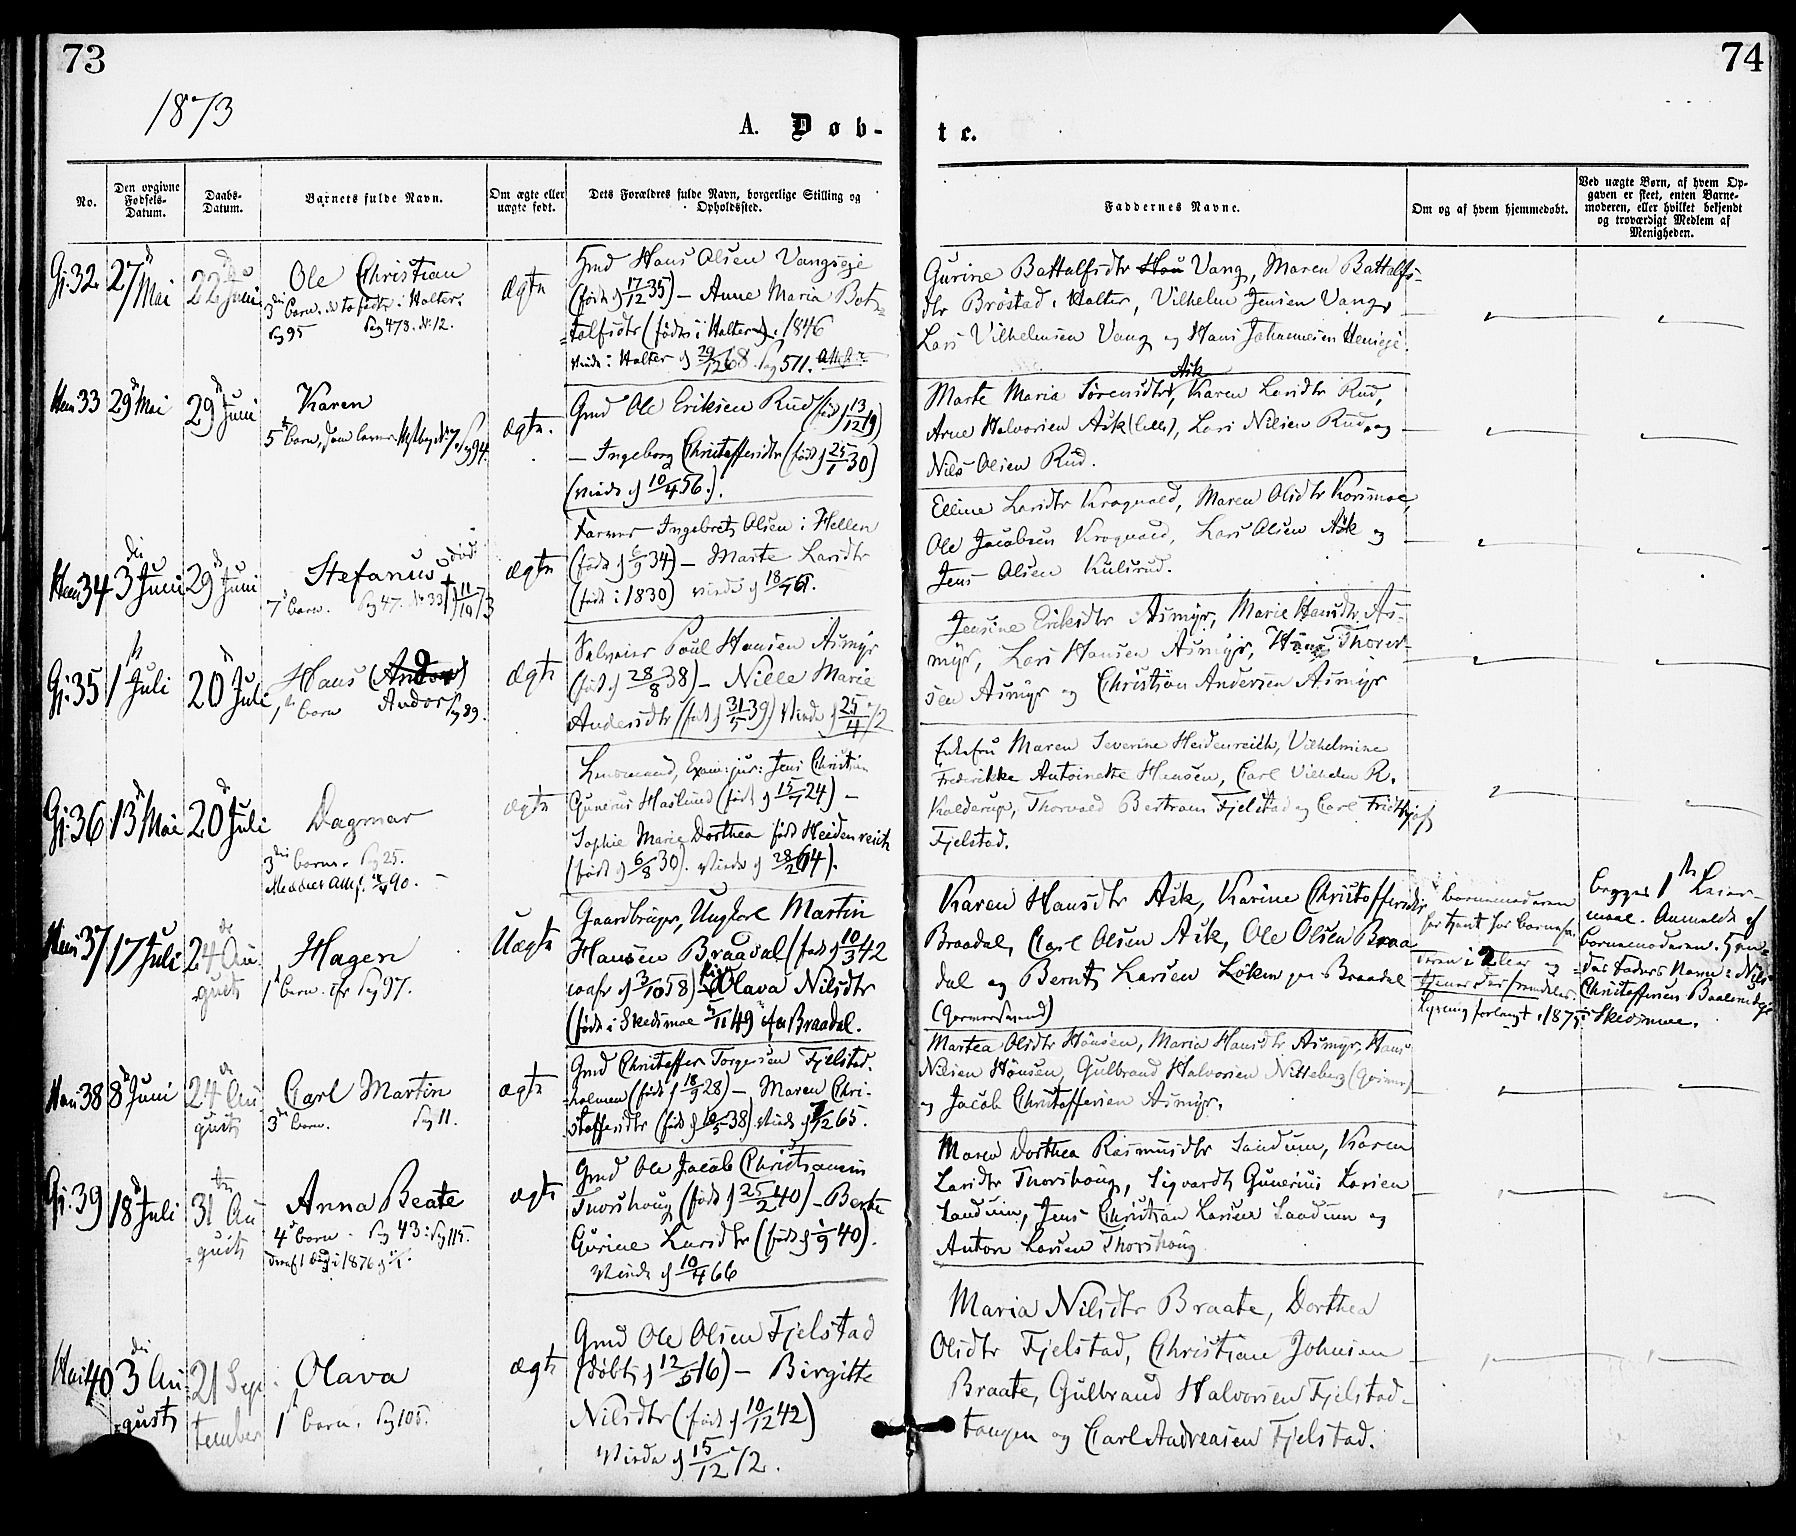 73
74
1873
A. Døb-
te.
No.
Den opgivne Fødsels-Datum.
Daabs-Datum.
Barnets fulde Navn.
Om ægte eller uægte født.
Dets Forældres fulde Navn, borgerlige Stilling og Opholdssted.
Faddernes Navne.
Om og af hvem hjemmedøbt.
Ved uægte Børn, af hvem Opgaven er skeet, enten Barnemoderen, eller hvilket bekjendt og troværdigt Medlem af Menigheden.
32
27 Mai
22 Juni
Ole Christian
3 barn
Pag 95
Pag 473. N. 12.
ægte
Gmd Hans Olsen Vangseje
(født 17/12 35) – Anne Maria Bot-
tolfsdtr (født i Holter) 1846
Viede i Holter 29/12 68. Pag 511.
Gurine Battalfsdtr Vang, Maren Battalfs-
dtr Brøstad i Holter, Vilhelm Jensen Vang,
Lars Vilhelmsen Vang og Hans Johannesen
33
29 Mai
29 Juni
Karen
5 barn
ægte.
Gmd Ole Eriksen Rud (født 13/12 19)
– Ingeborg Christoffersdtr (født 25/1 30)
(Viede 10/4 56.).
Marte Maria Sørensdtr Ask, Karen Larsdtr Rud,
Arne Halvorsen Ask (lille), Lars Nilsen Rud, og
Nils Olsen Rud.
34
3 Juni
29 Juni
Stefanus
7 barn. Pag 47. N. 33
ægte
Ingebret Olsen i Hellen
(født 34) – Marte Larsdtr
(født i 1830) viede
Elline Larsdtr Krogvold, Maren Olsdtr
Ole Jacobsen Krogvold, Lars Olsen Ask og
Jens Olsen Kulsrud.
35
1 Juli
20 Juli
Hans (Andor)
1 barn Andor Pag 89.
ægte
Selveier Poul Hansen Asmyr
(født 28/8 38) – Nille Marie
Andersdtr (født 31/5 39) Viede 25/4 72
Jensine Eriksdtr Asmyr, Marie Hansdtr As-
myr, Lars Hansen Asmyr, Hans Thorer-
sen Asmyr og Christian Andersen Asmyr
36
13 Mai
20 Juli
Dagmar
3 barn. Pag 25.
ægte
Lensmand, Exam: jur: Jens Christian
Gunerus Haslund (født 15/7 24) –
Sophie Marie Dorthea født Heidenreich
(født 6/8 30). Viede 28/2 64).
Enkefru Maren Severine Heidenreich, Vilhelmine
Frederikke Antoinette Hansen, Carl Vilhelm R.
Kalderup, Thorvald Bertram Fjelstad og Carl Fridthjof
Fjelstad.
37
17 Juli
24 Au-
gust
Hagen
1 barn. Pag 97.
Uægte
Gaardbruger, Ungkarl Martin
Hansen Braadal (født 10/3 42
conf 3/10 58) – Pige Olava Nilsdtr
(født i Skedsmoe 5/11 49 Braadal.
Karen Hansdtr Ask, Karine Christoffersdtr
Braadal, Carl Olsen Ask, Ole Olsen Braa-
dal og Bernt Larsen Løken Braadal
Barnemoderen
har tjent hos barnefa-
deren i 2 Aar og
1875
begges 1te Leier-
maal. Anmeldt af
barnemoderen.
Faders Navn: Nils
Christoffersen
i Skedsmoe.
38
8 Juni
24 Au-
gust
Carl Martin
3 barn. Pag 11.
ægte
Gmd Christoffer Torgersen Fjelstad-
holmen (født 18/9 28) – Maren Chri-
stoffersdtr (født 38). Viede 65.
Martea Olsdtr Hønsen, Maria Hansdtr Asmyr, Hans
Nilsen Hønsen, Gulbrand Halvorsen Nitteberg
og Jacob Christoffersen Asmyr.
39
18 Juli
31 Au-
gust
Anna Beate
4 barn. Pag 43: Pag 115.
ægte
Gmd Ole Jacob Christiansen
Thorshoug (født 25/2 40) – Berte
Gurine Larsdtr (født 40).
Viede 10/4 66
Maren Dorthea Rasmusdtr Sandum, Karen
Larsdtr Thorshoug, Sigvardt Gunerius Larsen
Sandum, Jens Christian Larsen Sandum og
Anton Larsen Thorshoug
40
3 Au-
gust
21 Sep-
tember
Olava
1 barn. Pag 105.
ægte
Gmd Ole Olsen Fjelstad
(døbt 12/5 16) – Birgitte
Nilsdtr (født 10/12 42)
Viede 15/12 72.
Maria Nilsdtr Braate, Dorthea
Olsdtr Fjelstad, Christian Johnsen
Braate, Gulbrand Halvorsen Fjelstad-
tangen og Carl Andreasen Fjelstad.